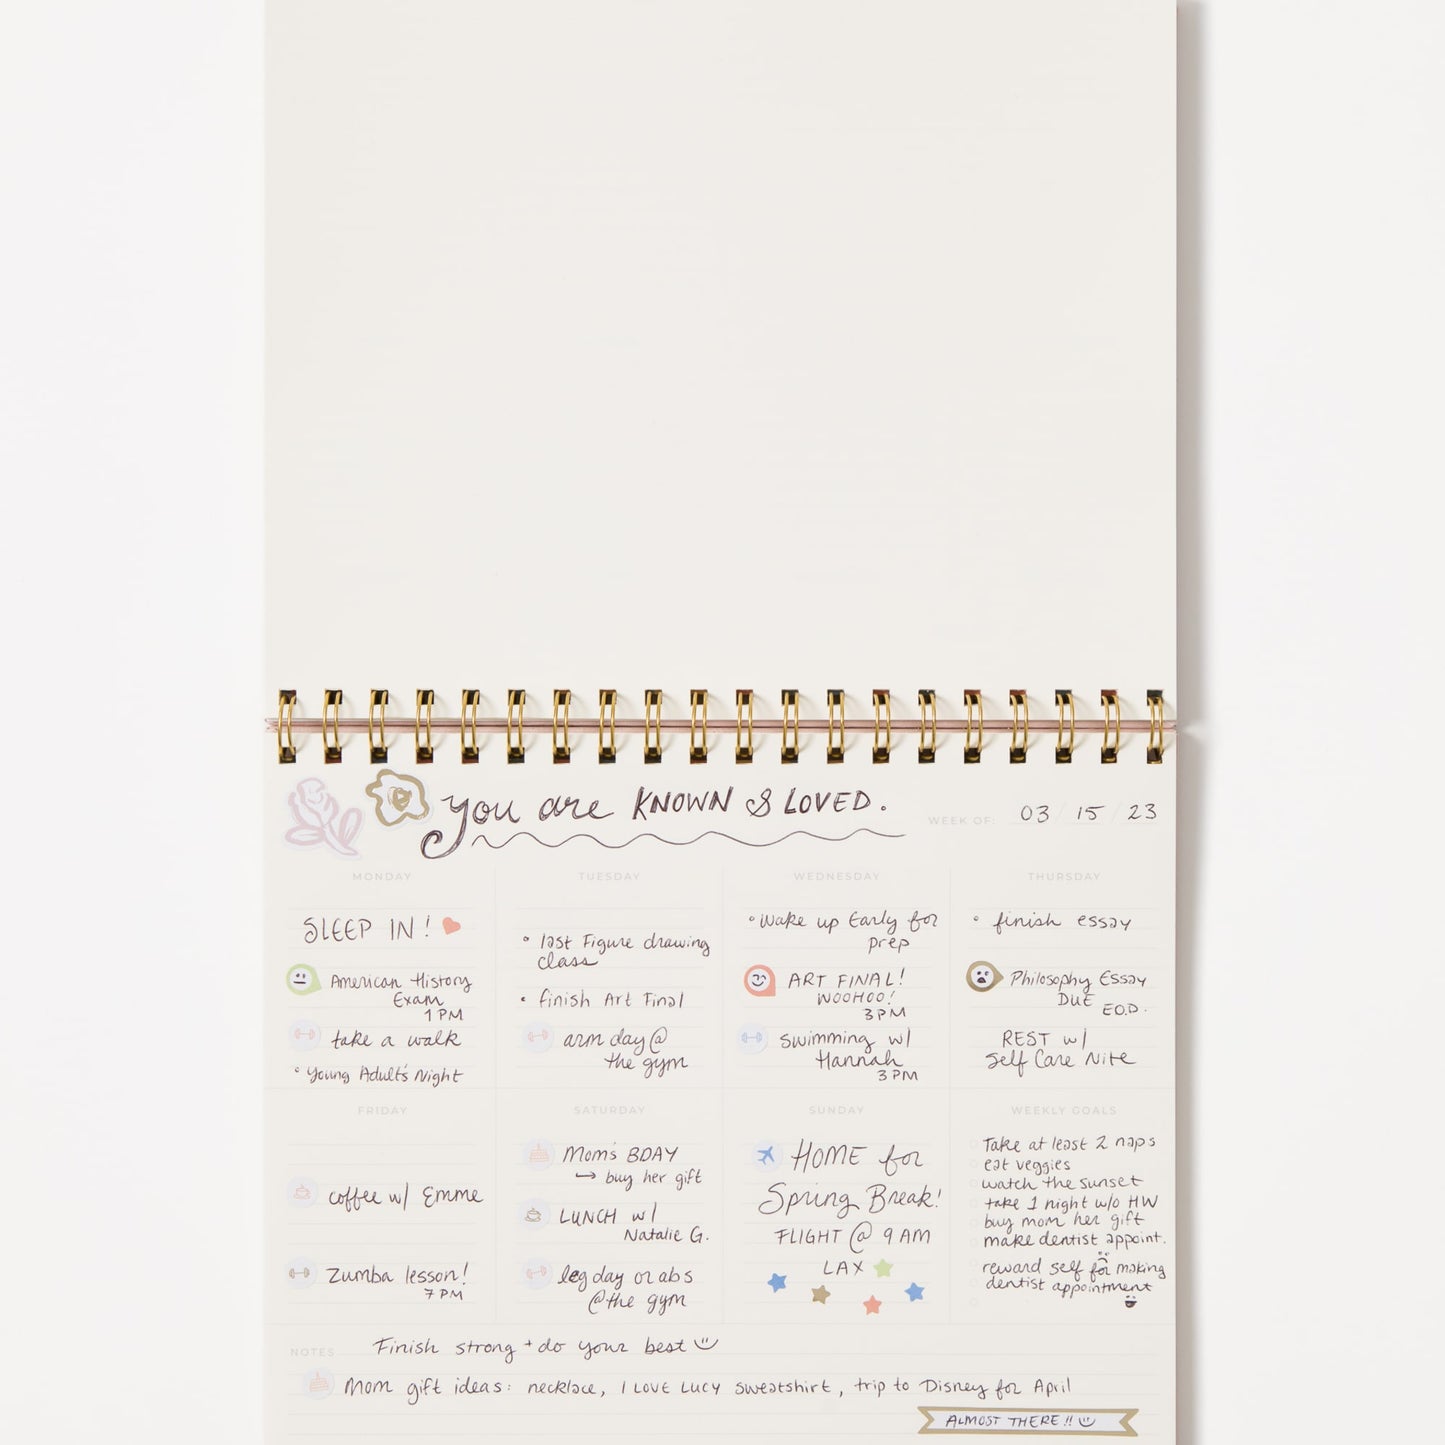 you are KNOWN & LOVED.
WEEK OF: 03 / 15 / 23
MONDAY
SLEEP IN!
American History
Exam
1 PM
take a walk
• Young Adult's Night
TUESDAY
• last Figure drawing
class
• finish Art Final
arm day @
the gym
WEDNESDAY
• Wake up Early for
prep
ART FINAL!
WOOHOO!
3PM
swimming w/
Hannah
3 PM
THURSDAY
• finish essay
Philosophy Essay
DUE E.O.D.
REST w/
Self Care Nite
FRIDAY
coffee w/ Emme
Zumba lesson!
7 PM
SATURDAY
Mom's BDAY
→ buy her gift
LUNCH w/
Natalie G.
leg day or abs
@the gym
SUNDAY
HOME for
Spring Break!
FLIGHT @ 9 AM
LAX
WEEKLY GOALS
Take at least 2 naps
eat veggies
watch the sunset
take 1 night w/o HW
buy mom her gift
make dentist appoint.
reward self for making
dentist appointment
NOTES Finish strong + do your best
Mom gift ideas: necklace, I LOVE LUCY sweatshirt, trip to Disney for April
ALMOST THERE!!